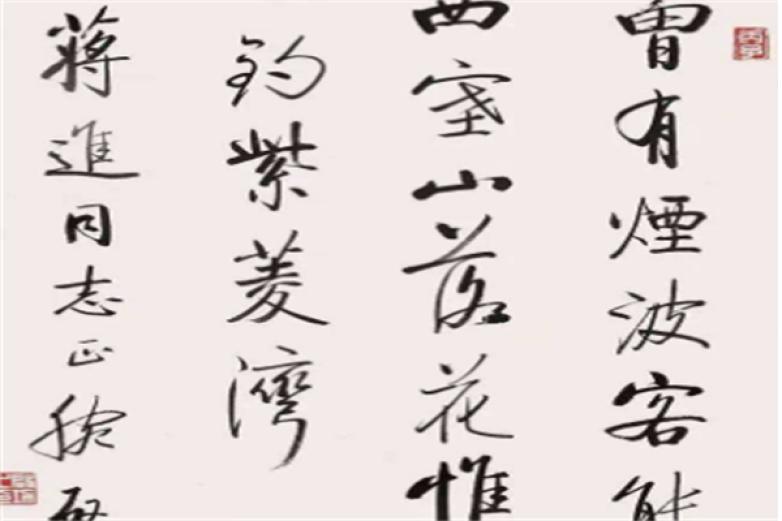 曾有煙波客能
西塞山落花惟
釣紫菱灣
蔣進同志正腕